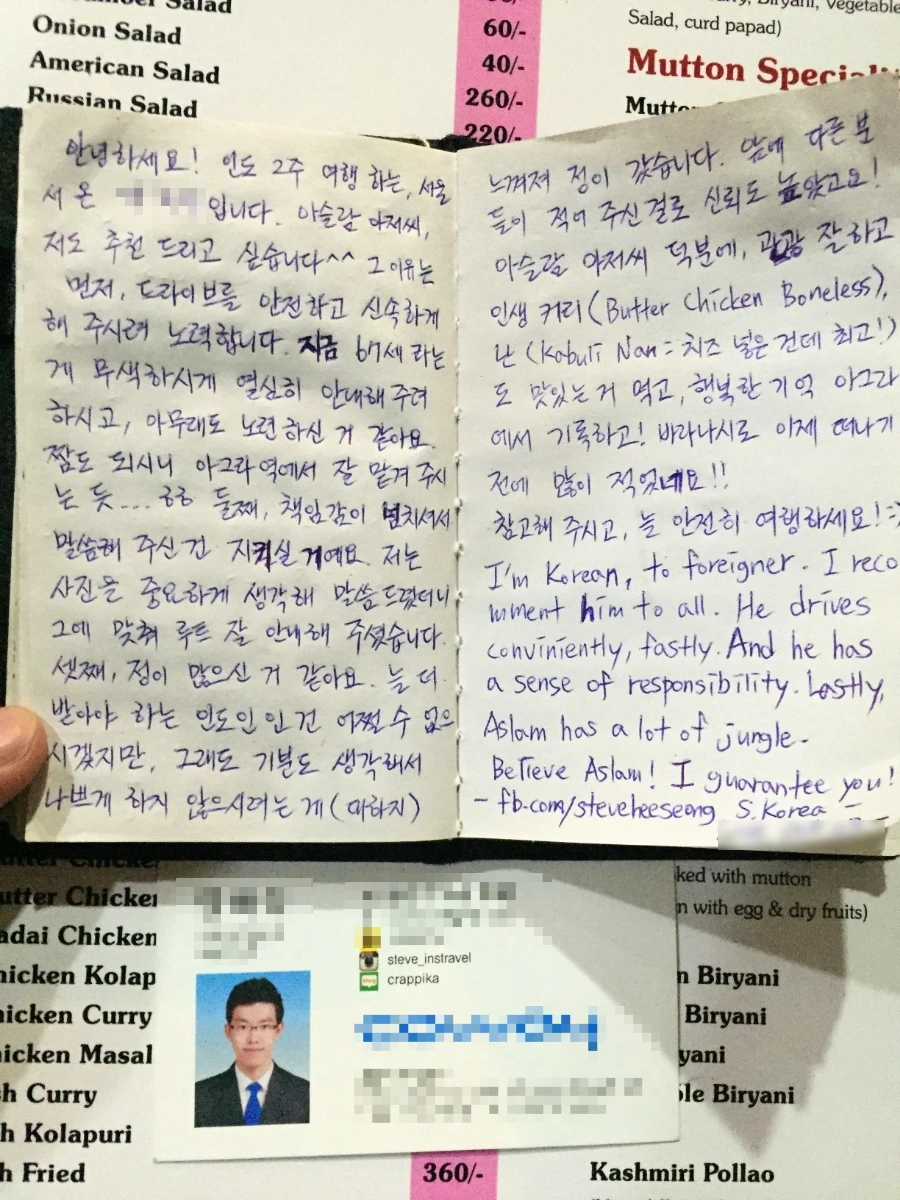 Salad
Onion Salad
60/-
American Salad
40/-
Russian Salad
260/-
220/-
Biryani, Vegetable
Salad, curd papad)
Mutton
안녕하세요! 인도 2주 여행 하는, 서울
서 온 입니다. 아슬람 아저씨,
저도 추천 드리고 싶습니다^^ 그 이유는
먼저, 드라이브를 안전하고 신속하게
해 주시려 노력합니다. 지금 67세 라는
게 무색하시게 열심히 안내해 주려
하시고, 아무래도 노련 하신 거 같아요.
짬도 되시니 아그라역에서 잘 맡겨 주시
는 듯... ㅎㅎ 둘째, 책임감이 넘치셔서
말씀해 주신 건 지키실 거예요. 저는
사진을 중요하게 생각해 말씀 드렸더니
그에 맞춰 루트 잘 안내해 주셨습니다.
셋째, 정이 많으신 거 같아요. 늘 더
받아야 하는 인도인 인 건 어쩔 수 없으
시겠지만, 그래도 기분도 생각해서
나쁘게 하지 않으시려는 게 (마하지)
느껴져 정이 갔습니다. 앞에 다른 분
들이 적어 주신 걸로 신뢰도 높았고요!
아슬람 아저씨 덕분에, 관광 잘 하고
인생 커리 (Butter Chicken Boneless),
난 (Kabuli Nan = 치즈 넣은 건데 최고!)
도 맛있는 거 먹고, 행복한 기억 아그라
에서 기록하고! 바라나시로 이제 떠나기
전에 많이 적었네요!!
참고해 주시고, 늘 안전히 여행하세요! :)
I'm Korean, to foreigner. I reco
mment him to all. He drives
conviniently, fastly. And he has
a sense of responsibility. Lastly,
Aslam has a lot of jungle.
Believe Aslam! I guarantee you!
- fb.com/steveheeseong S.Korea -
utter Chicken
adai Chicken
hicken Kolap
hicken Curry
hicken Masal
sh Curry
h Kolapuri
h Fried
360/-
ked with mutton
n with egg & dry fruits)
n Biryani
Biryani
yani
ble Biryani
Kashmiri Pollao
steve_instravel
crappika